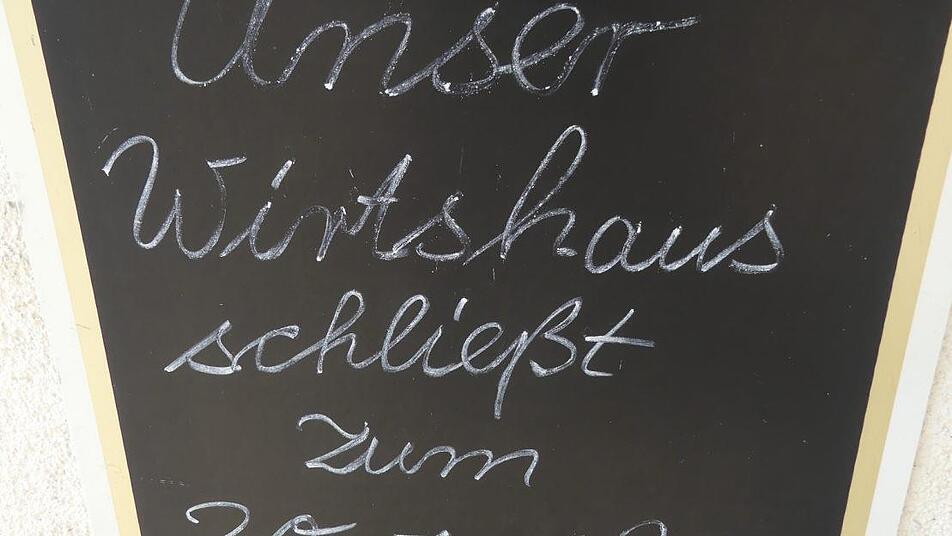 Unser
Wirtshaus
schließt
zum